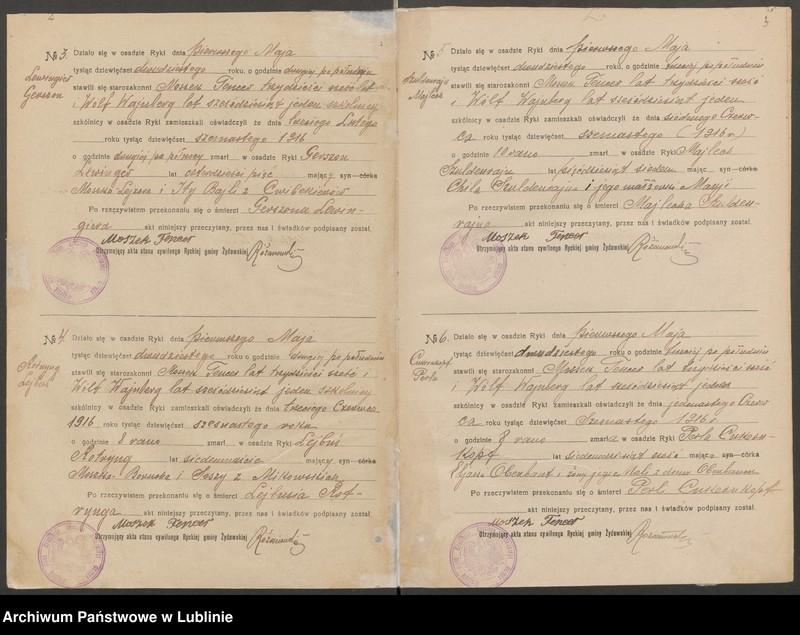 2
№ 3. Działo się w osadzie Ryki dnia pierwszego Maja
Lewingier
Gerszon
tysiąc dziewięćset dwudziestego roku, o godzinie drugiej po południu
stawili się starozakonni Moszek Fencer lat trzydzieści sześć lat
i Wólf Wajnberg lat sześćdziesiąt jeden szkolnicy
szkólnicy w osadzie Ryki zamieszkali oświadczyli że dnia Lutego
roku tysiąc dziewięćset szesnastego 1916
o godzinie drugiej po północy zmarł w osadzie Ryki Gerszon
Lewinger lat czterdzieści pięć mający syn córka
Moszka Lejzora i Ity Bajli z
Po rzeczywistem przekonaniu się o śmierci Gerszona Lewin-
giera akt niniejszy przeczytany, przez nas i świadków podpisany został.
Moszek Fencer
Utrzymujący akta stanu cywilnego Ryckiej gminy Żydowskiej
№ 4. Działo się w osadzie Ryki dnia pierwszego Maja
Rotryng
Lejbuś
tysiąc dziewięćset dwudziestego roku o godzinie drugiej po południu
stawili się starozakonni Moszek Fencer lat trzydzieści sześć i
Wólf Wajnberg lat sześćdziesiąt jeden szkolnicy
szkólnicy w osadzie Ryki zamieszkali oświadczyli że dnia trzeciego Czerwca
1916 roku tysiąc dziewięćset szesnastego roku
o godzinie 8 rano zmarł w osadzie Ryki Lejbuś
Rotryng lat siedemnaście mający syn córka
Moszka- i Soszy z
Po rzeczywistem przekonaniu się o śmierci Lejbusia Rot-
rynga akt niniejszy przeczytany, przez nas i świadków podpisany został.
Moszek Fencer
Utrzymujący akta stanu cywilnego Ryckiej gminy Żydowskiej
3
№ 5. Działo się w osadzie Ryki dnia pierwszego Maja
Szuldenrajn
Majlech
tysiąc dziewięćset dwudziestego roku, o godzinie trzeciej po południu
stawili się starozakonni Moszek Fencer lat trzydzieści sześć
i Wólf Wajnberg lat sześćdziesiąt jeden
szkólnicy w osadzie Ryki zamieszkali oświadczyli że dnia siódmego Czerw-
ca roku tysiąc dziewięćset szesnastego (1916 r)
o godzinie 10 rano zmarł w osadzie Ryki Majlech
Szuldenrajn lat pięćdziesiąt siedem mając syn córka
Chila Szuldenrajna i jego małżonki Maryi
Po rzeczywistem przekonaniu się o śmierci Majlecha Szulden-
rajna akt niniejszy przeczytany, przez nas i świadków podpisany został.
Moszek Fencer
Utrzymujący akta stanu cywilnego Ryckiej gminy Żydowskiej
№ 6. Działo się w osadzie Ryki dnia pierwszego Maja
Cukierkopf
Perla
tysiąc dziewięćset dwudziestego roku o godzinie trzeciej po południu
stawili się starozakonni Moszek Fencer lat trzydzieści sześć
i Wólf Wajnberg lat sześćdziesiąt jeden
szkólnicy w osadzie Ryki zamieszkali oświadczyli że dnia jedenastego Czerw-
ca roku tysiąc dziewięćset szesnastego 1916 r
o godzinie 8 rano zmarła w osadzie Ryki Perla Cukier-
kopf lat siedemdziesiąt sześć mając syn córka
i żony jego Mali z domu
Po rzeczywistem przekonaniu się o śmierci Perli Cukierkopf
akt niniejszy przeczytany, przez nas i świadków podpisany został.
Moszek Fencer
Utrzymujący akta stanu cywilnego Ryckiej gminy Żydowskiej
Archiwum Państwowe w Lublinie